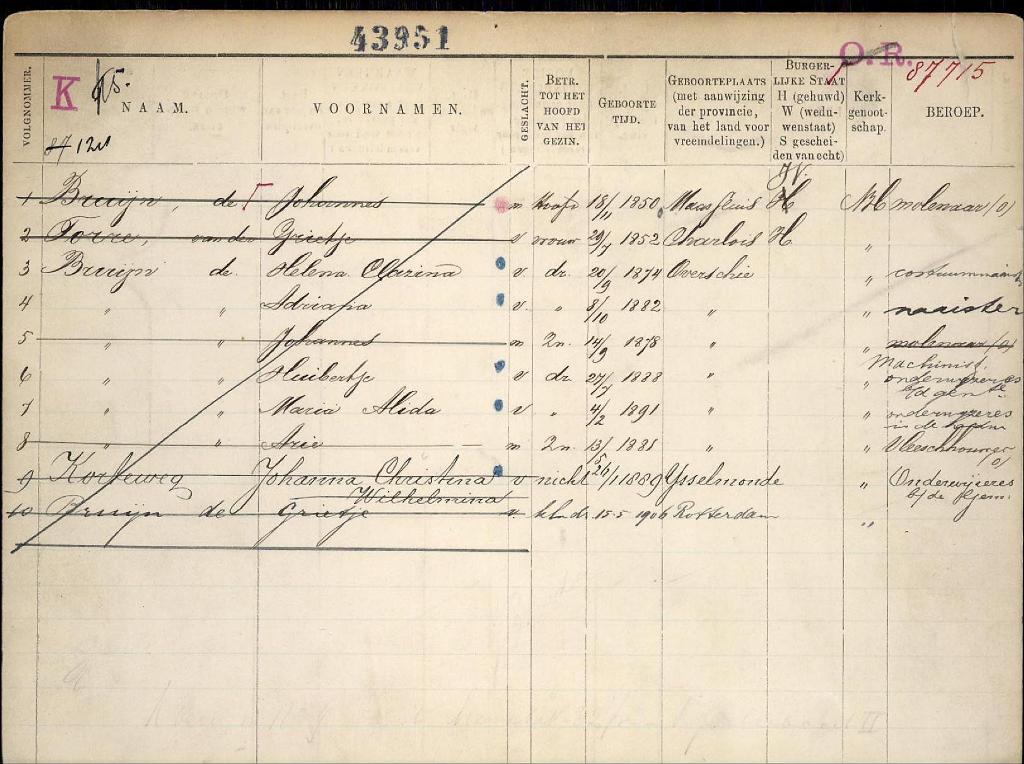 43951
O. R. 87715
K
VOLGNOMMER. NAAM. VOORNAMEN. GESLACHT. BETR. TOT HET HOOFD VAN HET GEZIN. GEBOORTE TIJD. GEBOORTEPLAATS (met aanwijzing der provincie, van het land voor vreemdelingen.) BURGERLIJKE STAAT H (gehuwd) W (weduwenstaat) S gescheiden van echt) Kerkgenootschap. BEROEP.
W.
1 Bruijn, de Johannes m Hoofd 18/11 1850 Maassluis H NH molenaar (o)
2 Torre, van der Grietje v vrouw 29/7 1852 Charlois H "
3 Bruijn de Helena Clazina v. dr. 20/9 1874 Overschie "
4 " " Adriana v. " 8/10 1882 " " naaister
5 " " Johannes m Zn. 14/9 1878 " " molenaar (o)
Machinist
6 " " Huibertje v dr 27/7 1888 " " onderwijzeres
7 " " Maria Alida v " 4/2 1891 " " onderwijzeres
8 " " Arie m Zn. 13/5 1881 " " Vleeschhouwer (o)
9 Korteweg Johanna Christina v nicht 26/1 1889 Ysselmonde " Onderwijzeres
Wilhelmina b/d Gem.
10 Bruijn de Grietje v. kl.dr. 15-5 1906 Rotterdam "